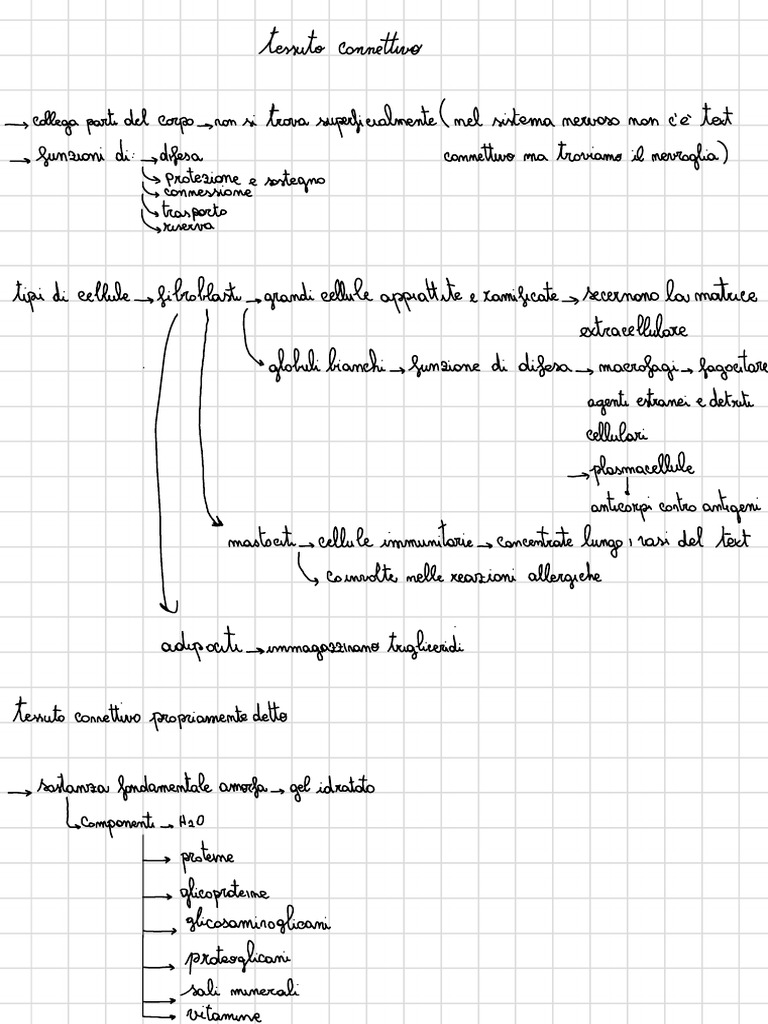 tessuto connettivo
→ collega parti del corpo → non si trova superficialmente (nel sistema nervoso non c'è test
connettivo ma troviamo il nevroglia)
→ funzioni di: → difesa
→ protezione e sostegno
→ connessione
→ trasporto
→ riserva
tipi di cellule → fibroblasti → grandi cellule appiattite e ramificate → secernono la matrice
extracellulare
→ globuli bianchi → funzione di difesa → macrofagi → fagocitare
agenti estranei e detriti
cellulari
→ plasmacellule
↓
anticorpi contro antigeni
mastociti → cellule immunitarie → concentrate lungo i vasi del test
→ coinvolte nelle reazioni allergiche
adipociti → immagazzinano trigliceridi
tessuto connettivo propriamente detto
→ sostanza fondamentale amorfa → gel idratato
→ componenti → H2O
→ proteine
→ glicoproteine
→ glicosaminoglicani
→ proteoglicani
→ sali minerali
→ vitamine